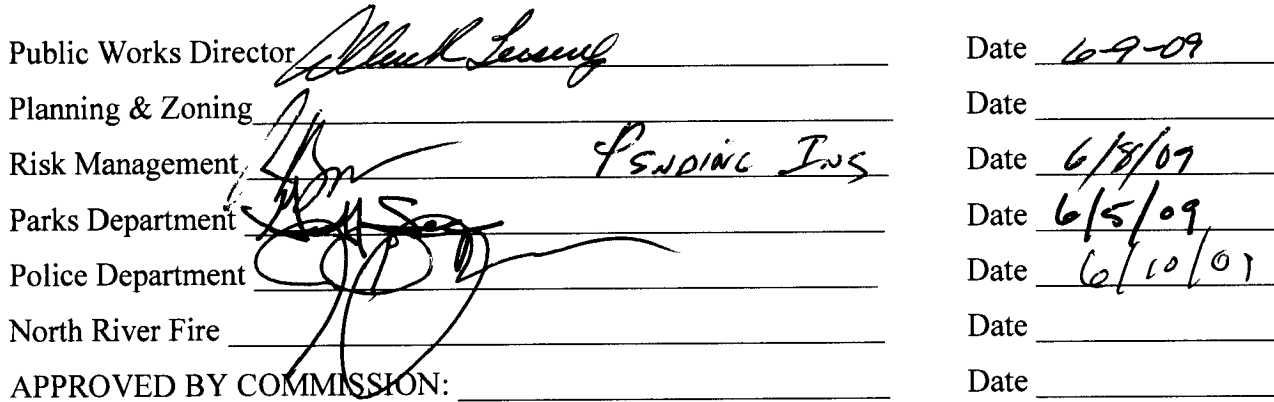 Public Works Director Date 6-9-09
Planning & Zoning Date
Risk Management Pending Ins Date 6/8/09
Parks Department Date 6/5/09
Police Department Date 6/10/09
North River Fire Date
APPROVED BY COMMISSION: Date